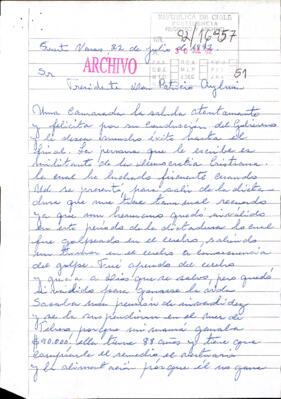 REPUBLICA DE CHILE
PRESIDENCIA
92/16957
Sant Vasa, 22 de julio 1992
ARCHIVO
51
Sr
Presidente Don Patricio Aylwin
Una Camarada lo saluda atentamente
y felicita por su conducción de Gobierno
y le deseo muestro éxito hasta el
final. La persona que le escribe es
militante de la Democracia Cristiana.
la cual he luchado firmemente cuando
Ud se presentó para salir de la dicta-
dura que me trae tan mal recuerdo
ya que mi hermano quedo inválido
en este periodo de la dictadura la cual
fue golpeado en el cerebro, saliendo
un tumor en el cerebro a consecuencia
del golpe. Fué operado de cerebro
y gracia a Dios que se salvo, pero quedó
invalido para ganarse la vida
Sacaba una pensión de invalidez
y se la suspendieron en el mes de
Febrero porque mi mamá ganaba
$ 90.000. ella tiene 88 años y tiene que
comprarle el remedio el vestuario
y la alimentación porque él no gana